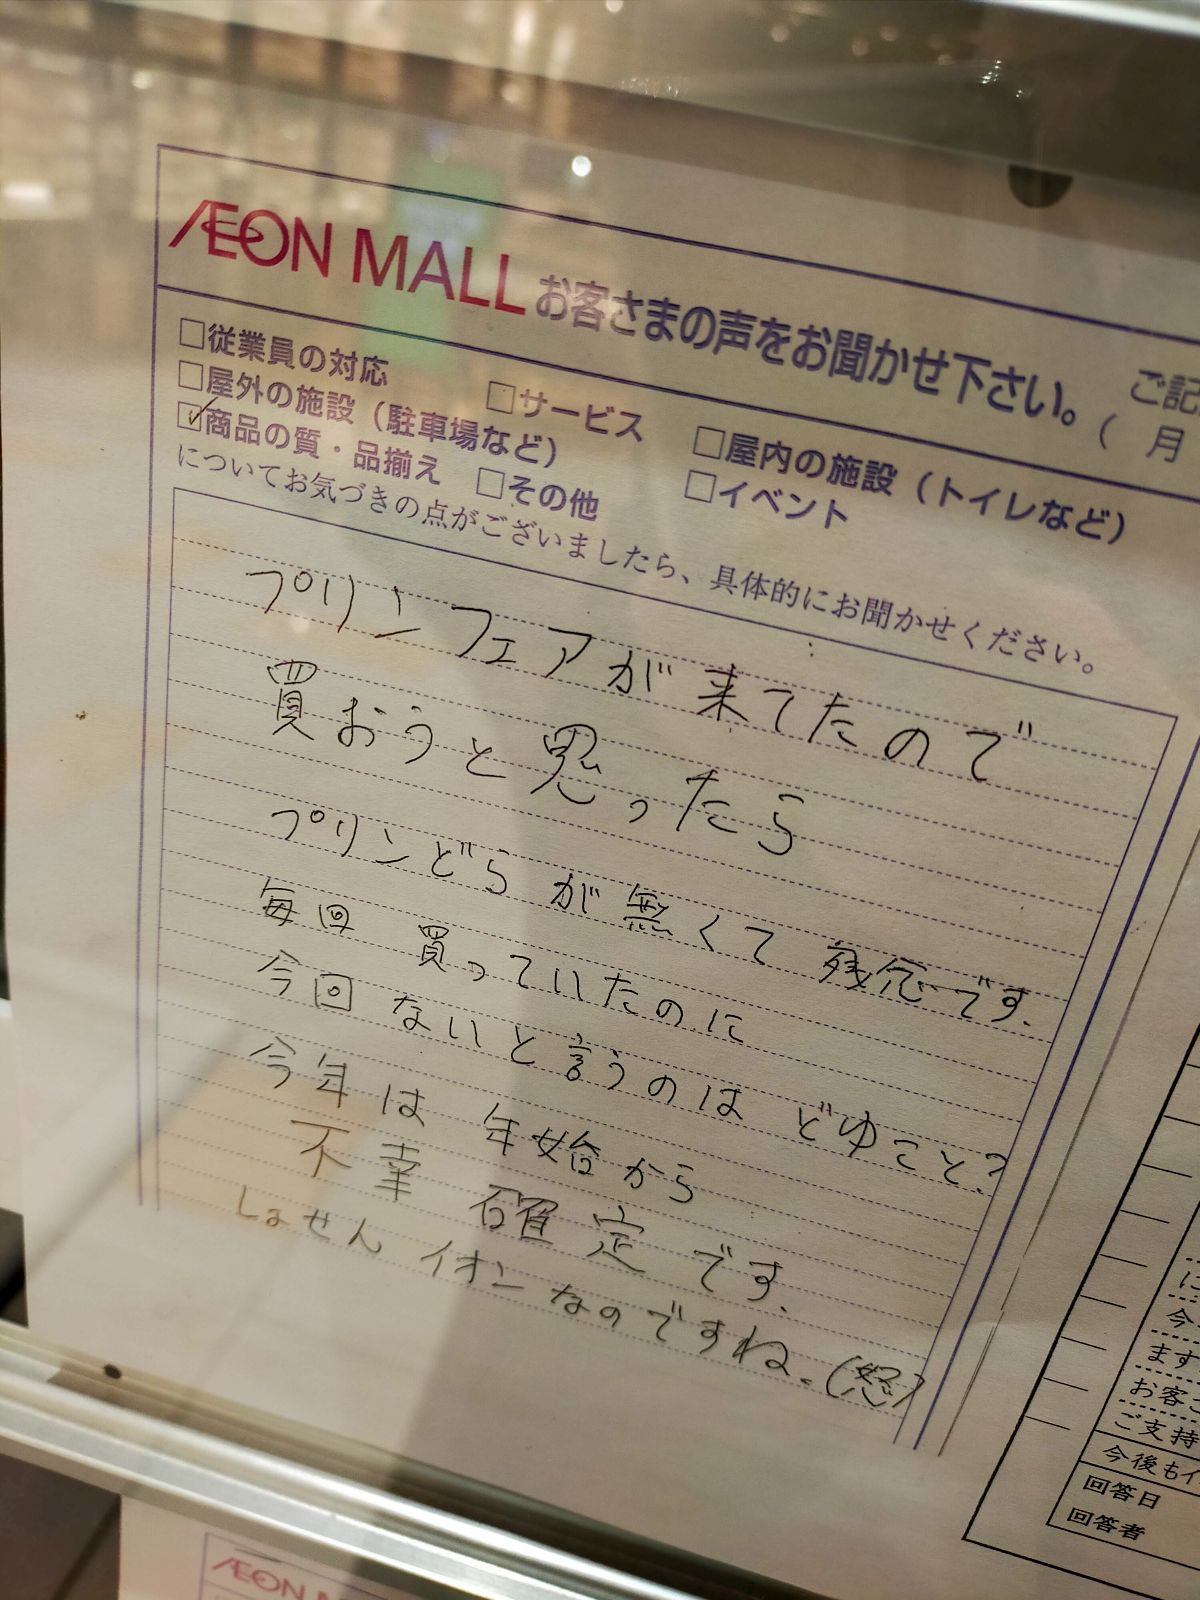 ÆON MALL お客さまの声をお聞かせ下さい。
ご記
( 月
□従業員の対応 □サービス
□屋外の施設（駐車場など） □屋内の施設（トイレなど）
☑商品の質・品揃え □その他 □イベント
についてお気づきの点がございましたら、具体的にお聞かせください。
プリンフェアが来てたので
買おうと思ったら
プリンどらが無くて 残念です.
毎回 買っていたのに
今回 ないと言うのは どゆこと?
今年は 年始から
不幸 確定です.
しょせん イオンなのですね.(怒)
に
今
ます
お客さ
ご支持
今後もイ
回答日
回答者
ÆON M